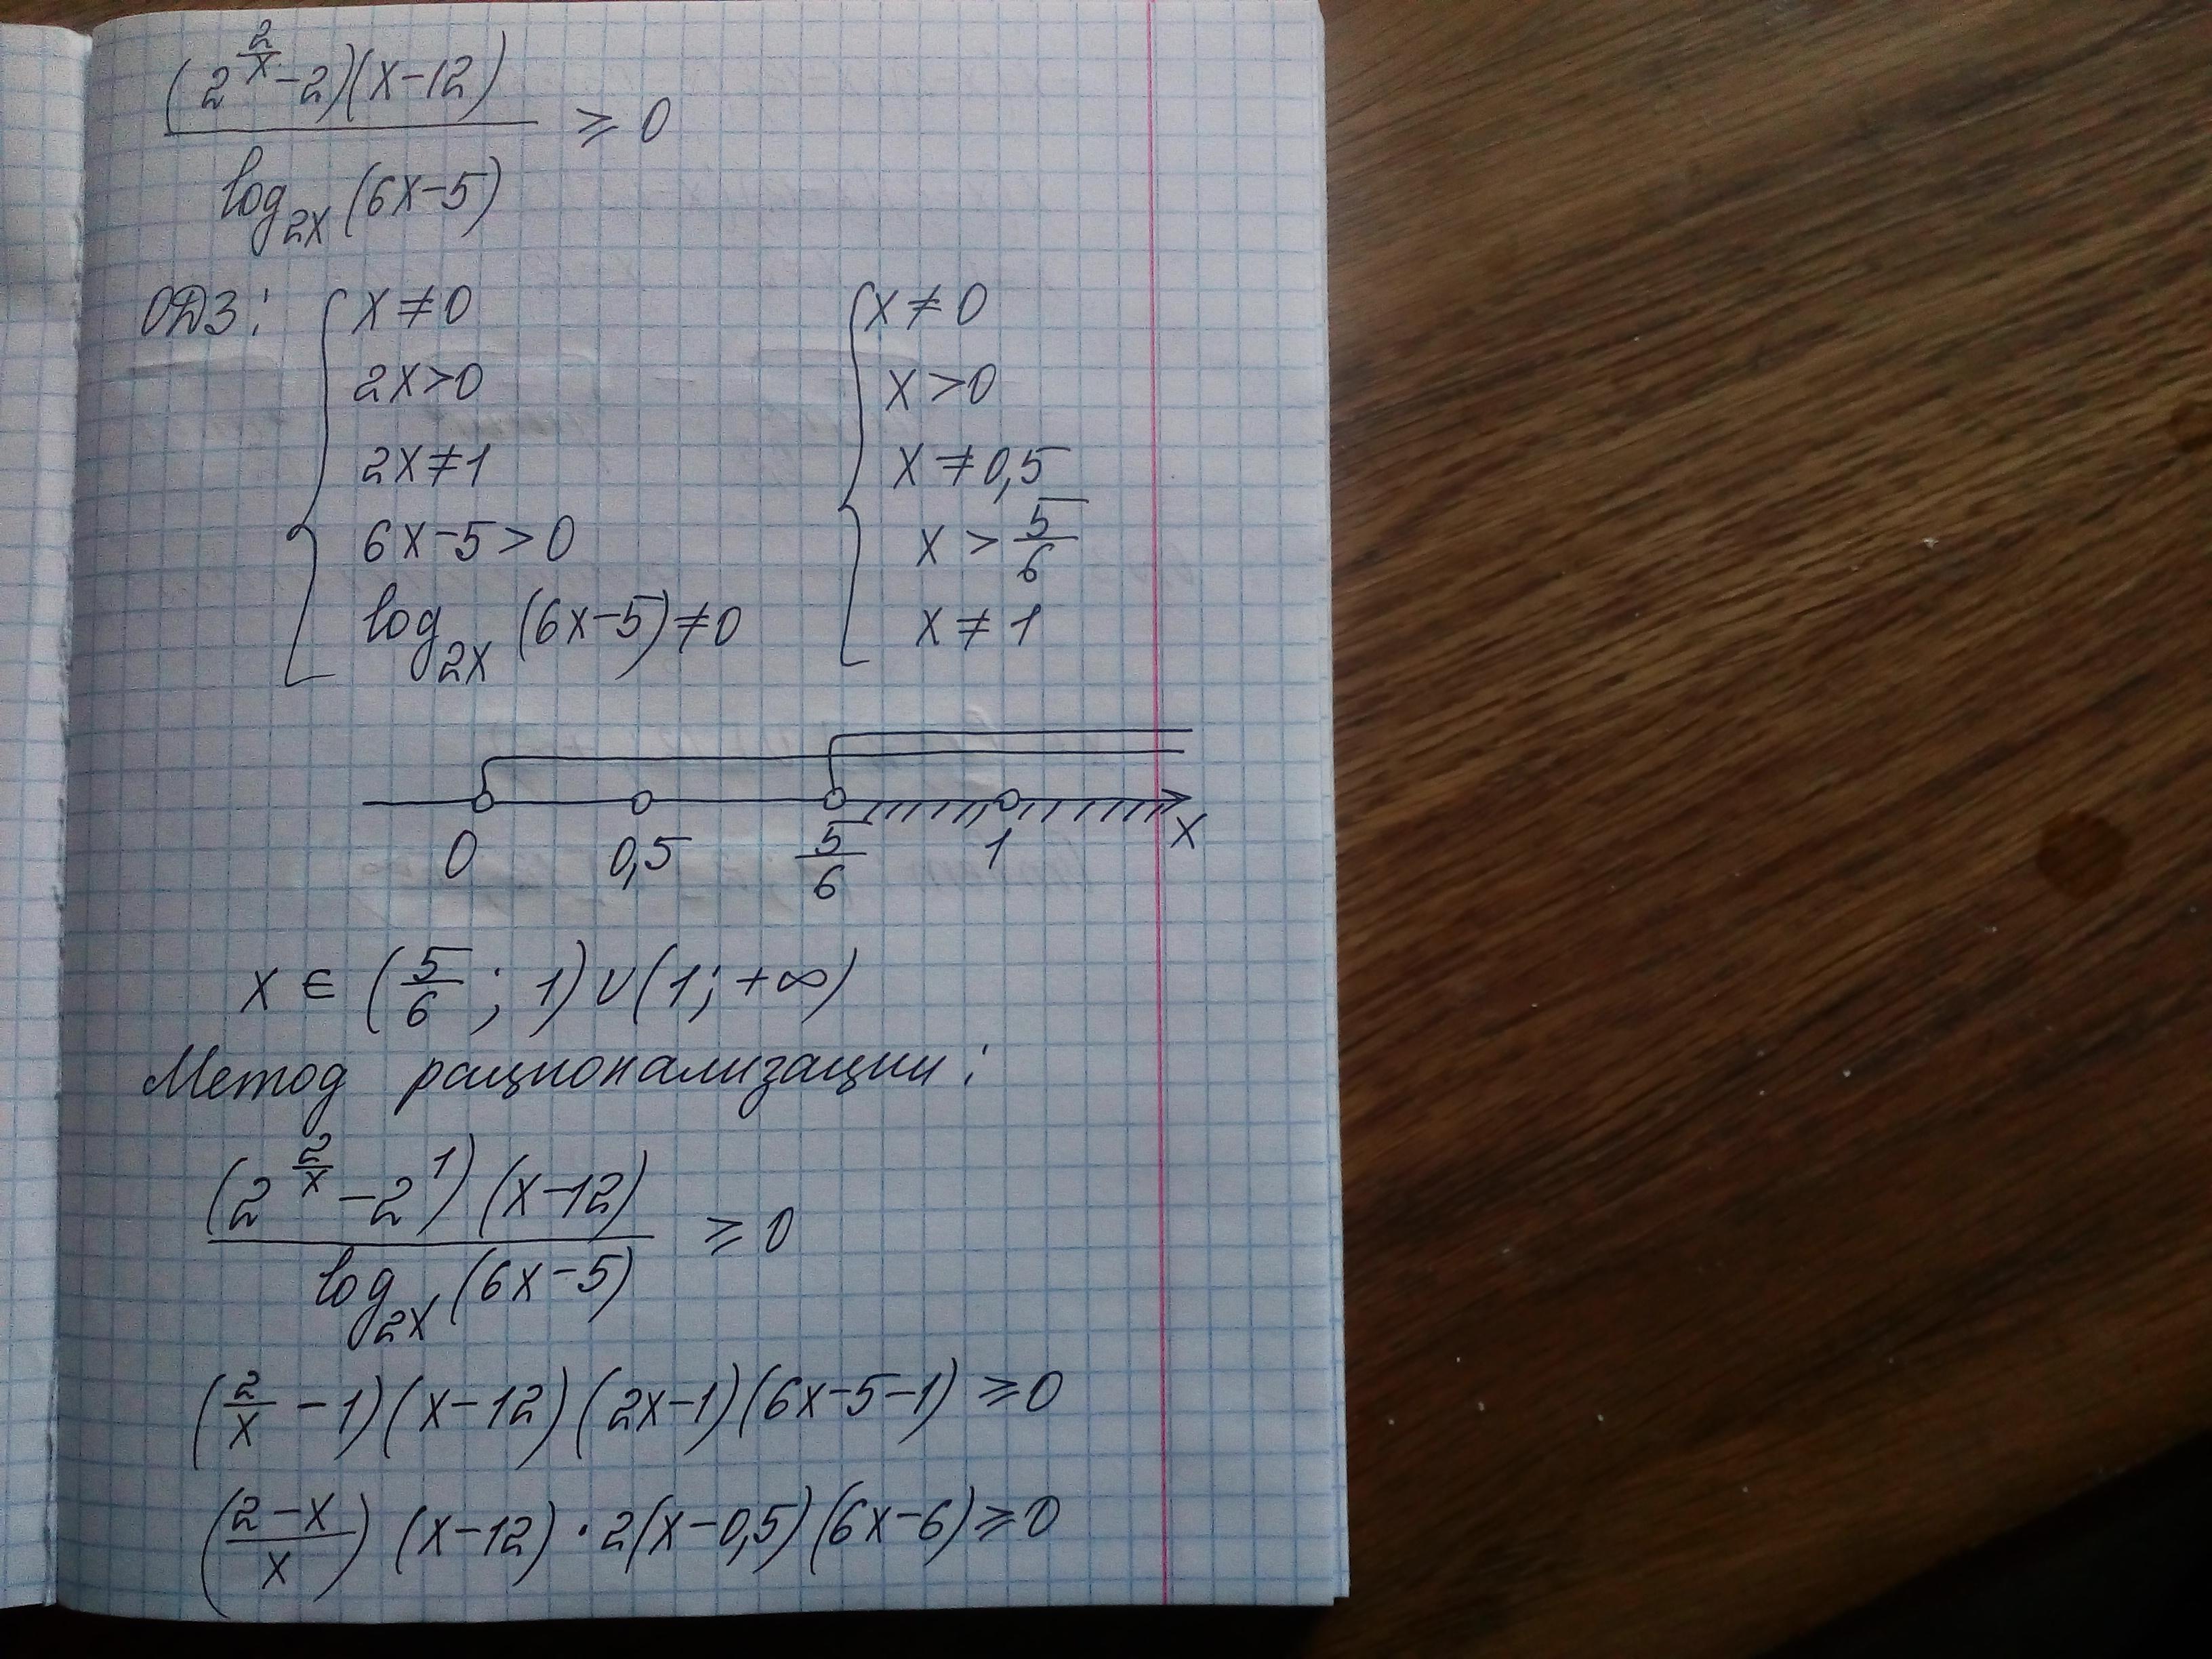 (2^(2/x) - 2)(x-12)
———————— ≥ 0
log_2x (6x-5)
ОДЗ: { x ≠ 0 { x ≠ 0
2x > 0 x > 0
2x ≠ 1 x ≠ 0,5
6x - 5 > 0 x > 5/6
log_2x (6x-5) ≠ 0 x ≠ 1
0 0,5 5/6 1 x
x ∈ (5/6; 1) ∪ (1; +∞)
Метод рационализации:
(2^(2/x) - 2^1)(x-12)
———————— ≥ 0
log_2x (6x-5)
(2/x - 1)(x-12)(2x-1)(6x-5-1) ≥ 0
((2-x)/x) (x-12) · 2(x-0,5)(6x-6) ≥ 0